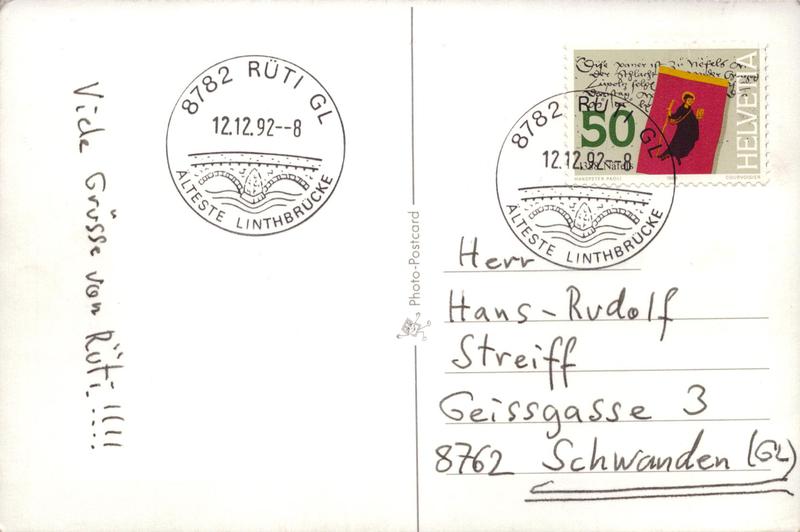 Viele Grüsse von Rüti!!!!!
8782 RÜTI GL
12.12.92--8
ÄLTESTE LINTHBRÜCKE
Photo-Postcard
50
HELVETIA
1388 Näfels
HANSPETER PAOLI
COURVOISIER
8782 RÜTI GL
12.12.92--8
ÄLTESTE LINTHBRÜCKE
Herr
Hans-Rudolf
Streiff
Geissgasse 3
8762 Schwanden (GL)